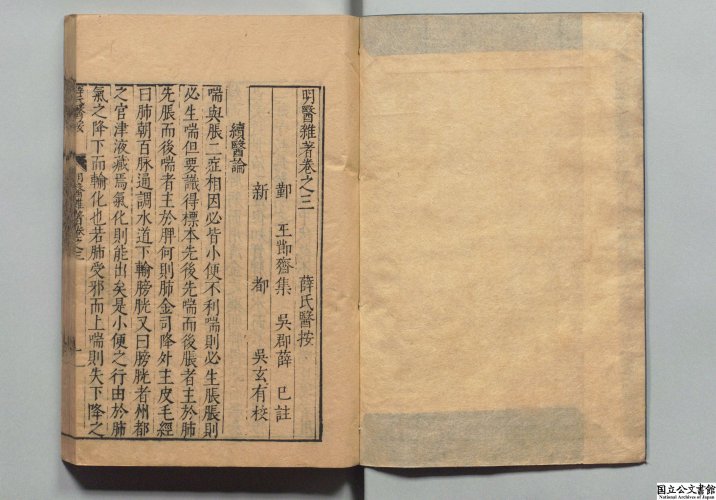 明醫雜著卷之三　薛氏醫按
鄞　王節齋集　吳郡薛　已註
新　都　吳玄有校
續醫論
喘與脹二症相因必皆小便不利喘則必生脹脹則
必生喘但要識得標本先後先喘而後脹者主於肺
先脹而後喘者主於脾何則肺金司降外主皮毛經
曰肺朝百脉通調水道下輸膀胱又曰膀胱者州都
之官津液藏焉氣化則能出矣是小便之行由於肺
氣之降下而輸化也若肺受邪而上喘則失下降之
薛氏醫按　明醫雜著卷之三　一
国立公文書館
National Archives of Japan